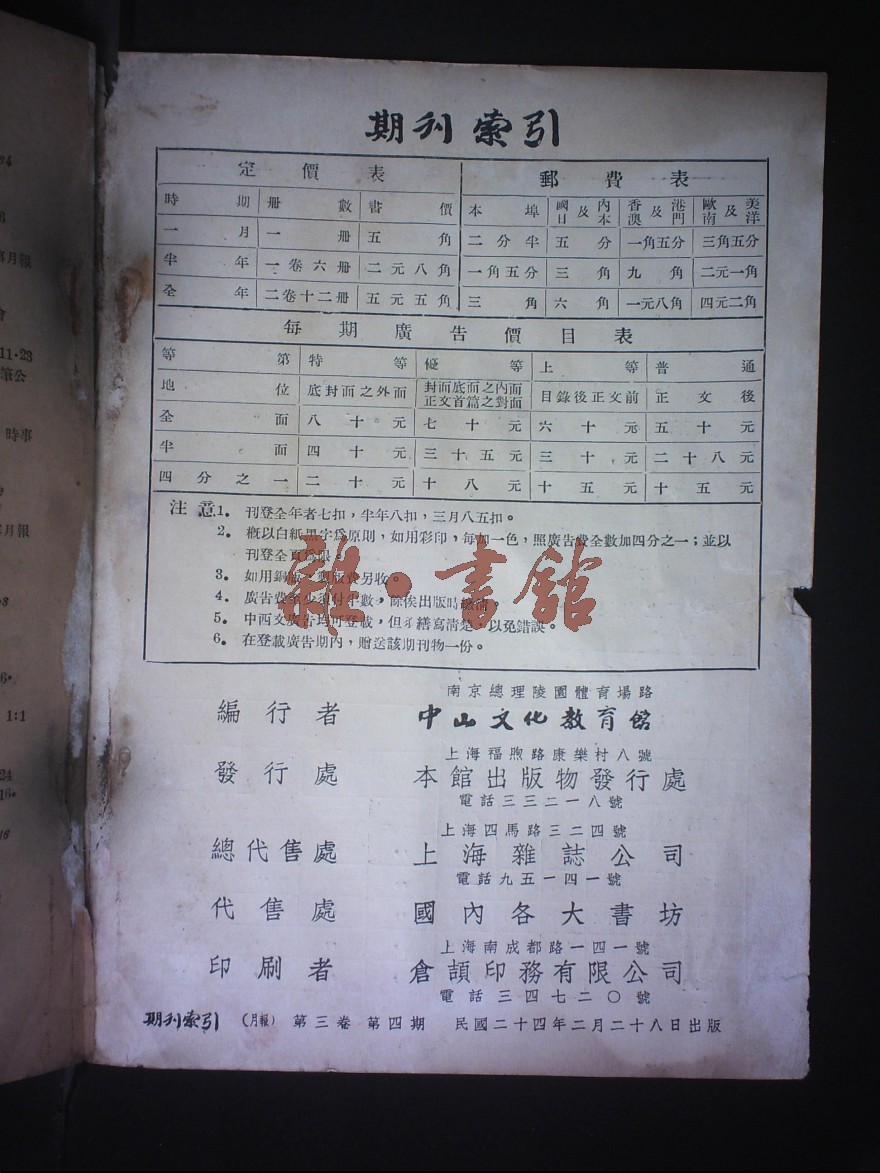 期刊索引
定價表
時期 冊數 書價
一月 一冊 五角
半年 一卷六冊 二元八角
全年 二卷十二冊 五元五角
郵費表
本埠 國內及日本 香港及澳門 歐美及南洋
二分半 五分 一角五分 三角五分
一角五分 三角 九角 二元一角
三角 六角 一元八角 四元二角
每期廣告價目表
等第 特等 優等 上等 普通
地位 底封面之外面 封面底面之內面 正文首篇之對面 目錄後正文前 正文後
全面 八十元 七十元 六十元 五十元
半面 四十元 三十五元 三十元 二十八元
四分之一 二十元 十八元 十五元 十五元
注意 1. 刊登全年者七扣，半年八扣，三月八五扣。
2. 概以白紙黑字爲原則，如用彩印，每加一色，照廣告費全數加四分之一；並以
刊登全頁爲限。
3. 如用銅版，製版費另收。
4. 廣告費至少須付半數，餘俟出版時繳清。
5. 中西文廣告均可登載，但須繕寫清楚，以免錯誤。
6. 在登載廣告期內，贈送該期刊物一份。
雜·書館
南京總理陵園體育場路
編行者 中山文化教育館
上海福煦路康樂村八號
發行處 本館出版物發行處
電話三三二一八號
上海四馬路三二四號
總代售處 上海雜誌公司
電話九五一四一號
代售處 國內各大書坊
上海南成都路一四一號
印刷者 倉頡印務有限公司
電話三四七二〇號
期刊索引 （月報） 第三卷 第四期 民國二十四年二月二十八日出版
24
月報
11·23
筆公
時事
月報
1:1
24
16